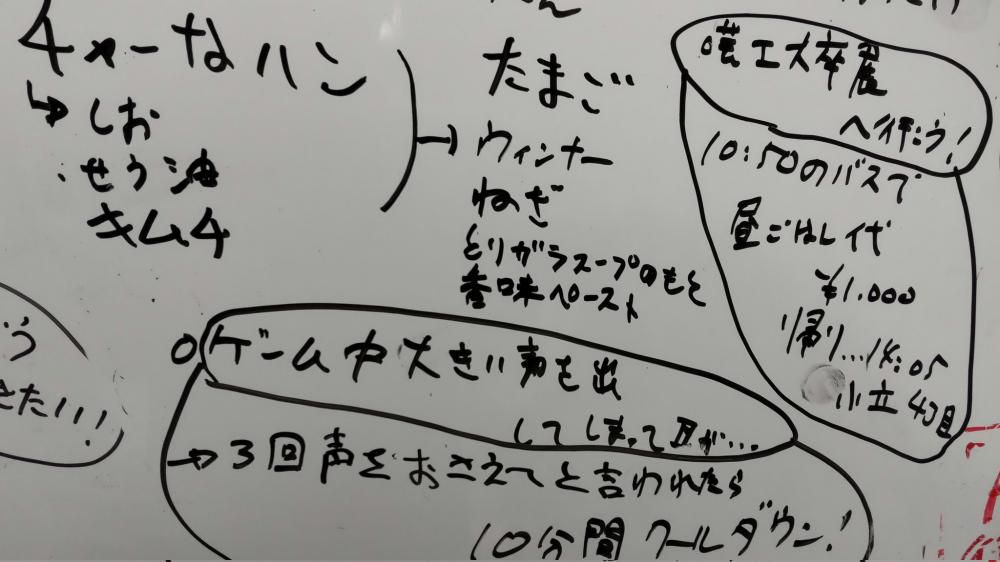 チャーはハン
→しお
・せう油
キムチ
→ たまご
ウィンナー
ねぎ
とりガラスープのもと
香味ペースト
工大卒展
へ行こう!
10:50のバスで
昼ごはん代
¥1.000
帰り…15:05
小立野4丁目
う
きた!!!
○ゲーム中大きい声を出
してしまって耳が…
→3回声をおさえてと言われたら
10分間クールダウン!